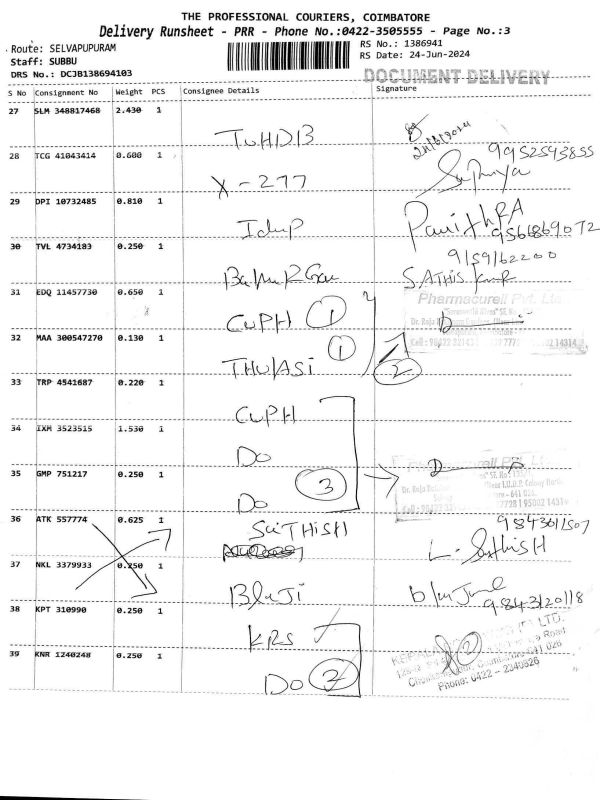 THE PROFESSIONAL COURIERS, COIMBATORE
Delivery Runsheet - PRR - Phone No.:0422-3505555 - Page No.:3
Route: SELVAPUPURAM
RS No.: 1386941
Staff: SUBBU
RS Date: 24-Jun-2024
DRS No.: DCJB138694103
DOCUMENT DELIVERY
S No Consignment No Weight PCS Consignee Details Signature
27 SLM 348817468 2.430 1
28 TCG 41043414 0.600 1
X-277
9952593855
29 DPI 10732485 0.810 1
PavithRA
9566869072
30 TVL 4734183 0.250 1
9159162200
SATHIS
31 EDQ 11457730 0.650 1
CUPH 1
Pharmacureil Pvt. Ltd
32 MAA 300547270 0.130 1
THULASI 1
2
33 TRP 4541687 0.220 1
CUPH
34 IXM 3523515 1.530 1
Do
35 GMP 751217 0.250 1
Do 3
36 ATK 557774 0.625 1
SaiTHISH
9843611507
L. Sathish
37 NKL 3379933 0.250 1
BlaJi
9843120118
38 KPT 310990 0.250 1
KRS
39 KNR 1240248 0.250 1
Do
2
Phone: 0422 - 2340626